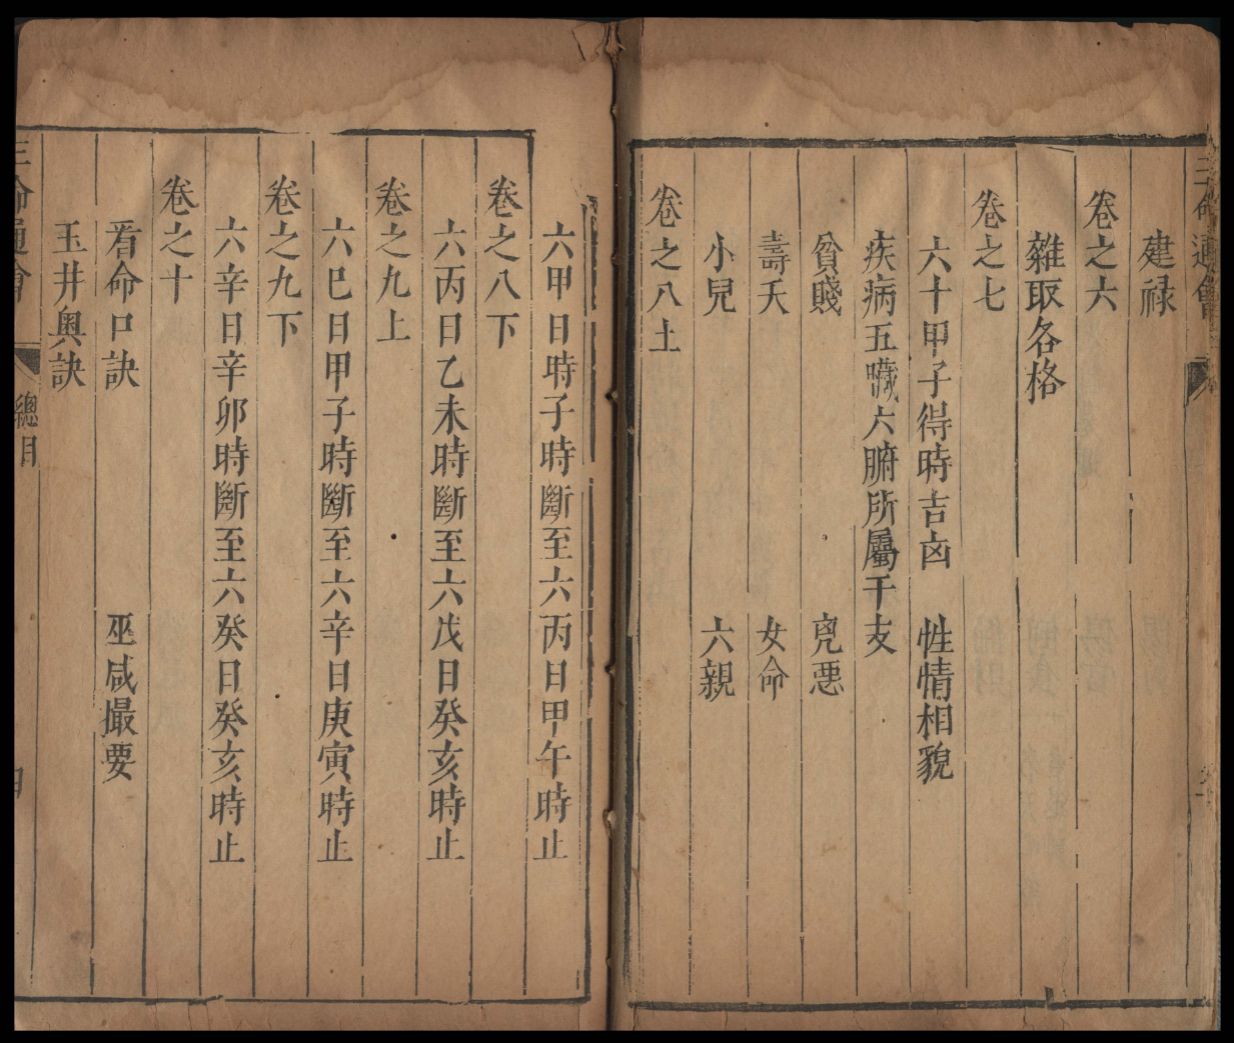 三命通會
建祿
卷之六
雜取各格
卷之七
六十甲子得時吉凶 性情相貌
疾病五臟六腑所屬干支
貧賤 兇惡
壽夭 女命
小兒 六親
卷之八上
六甲日時子時斷至六丙日甲午時止
卷之八下
六丙日乙未時斷至六戊日癸亥時止
卷之九上
六巳日甲子時斷至六辛日庚寅時止
卷之九下
六辛日辛卯時斷至六癸日癸亥時止
卷之十
看命口訣 巫咸撮要
玉井奧訣
三命通會 總目